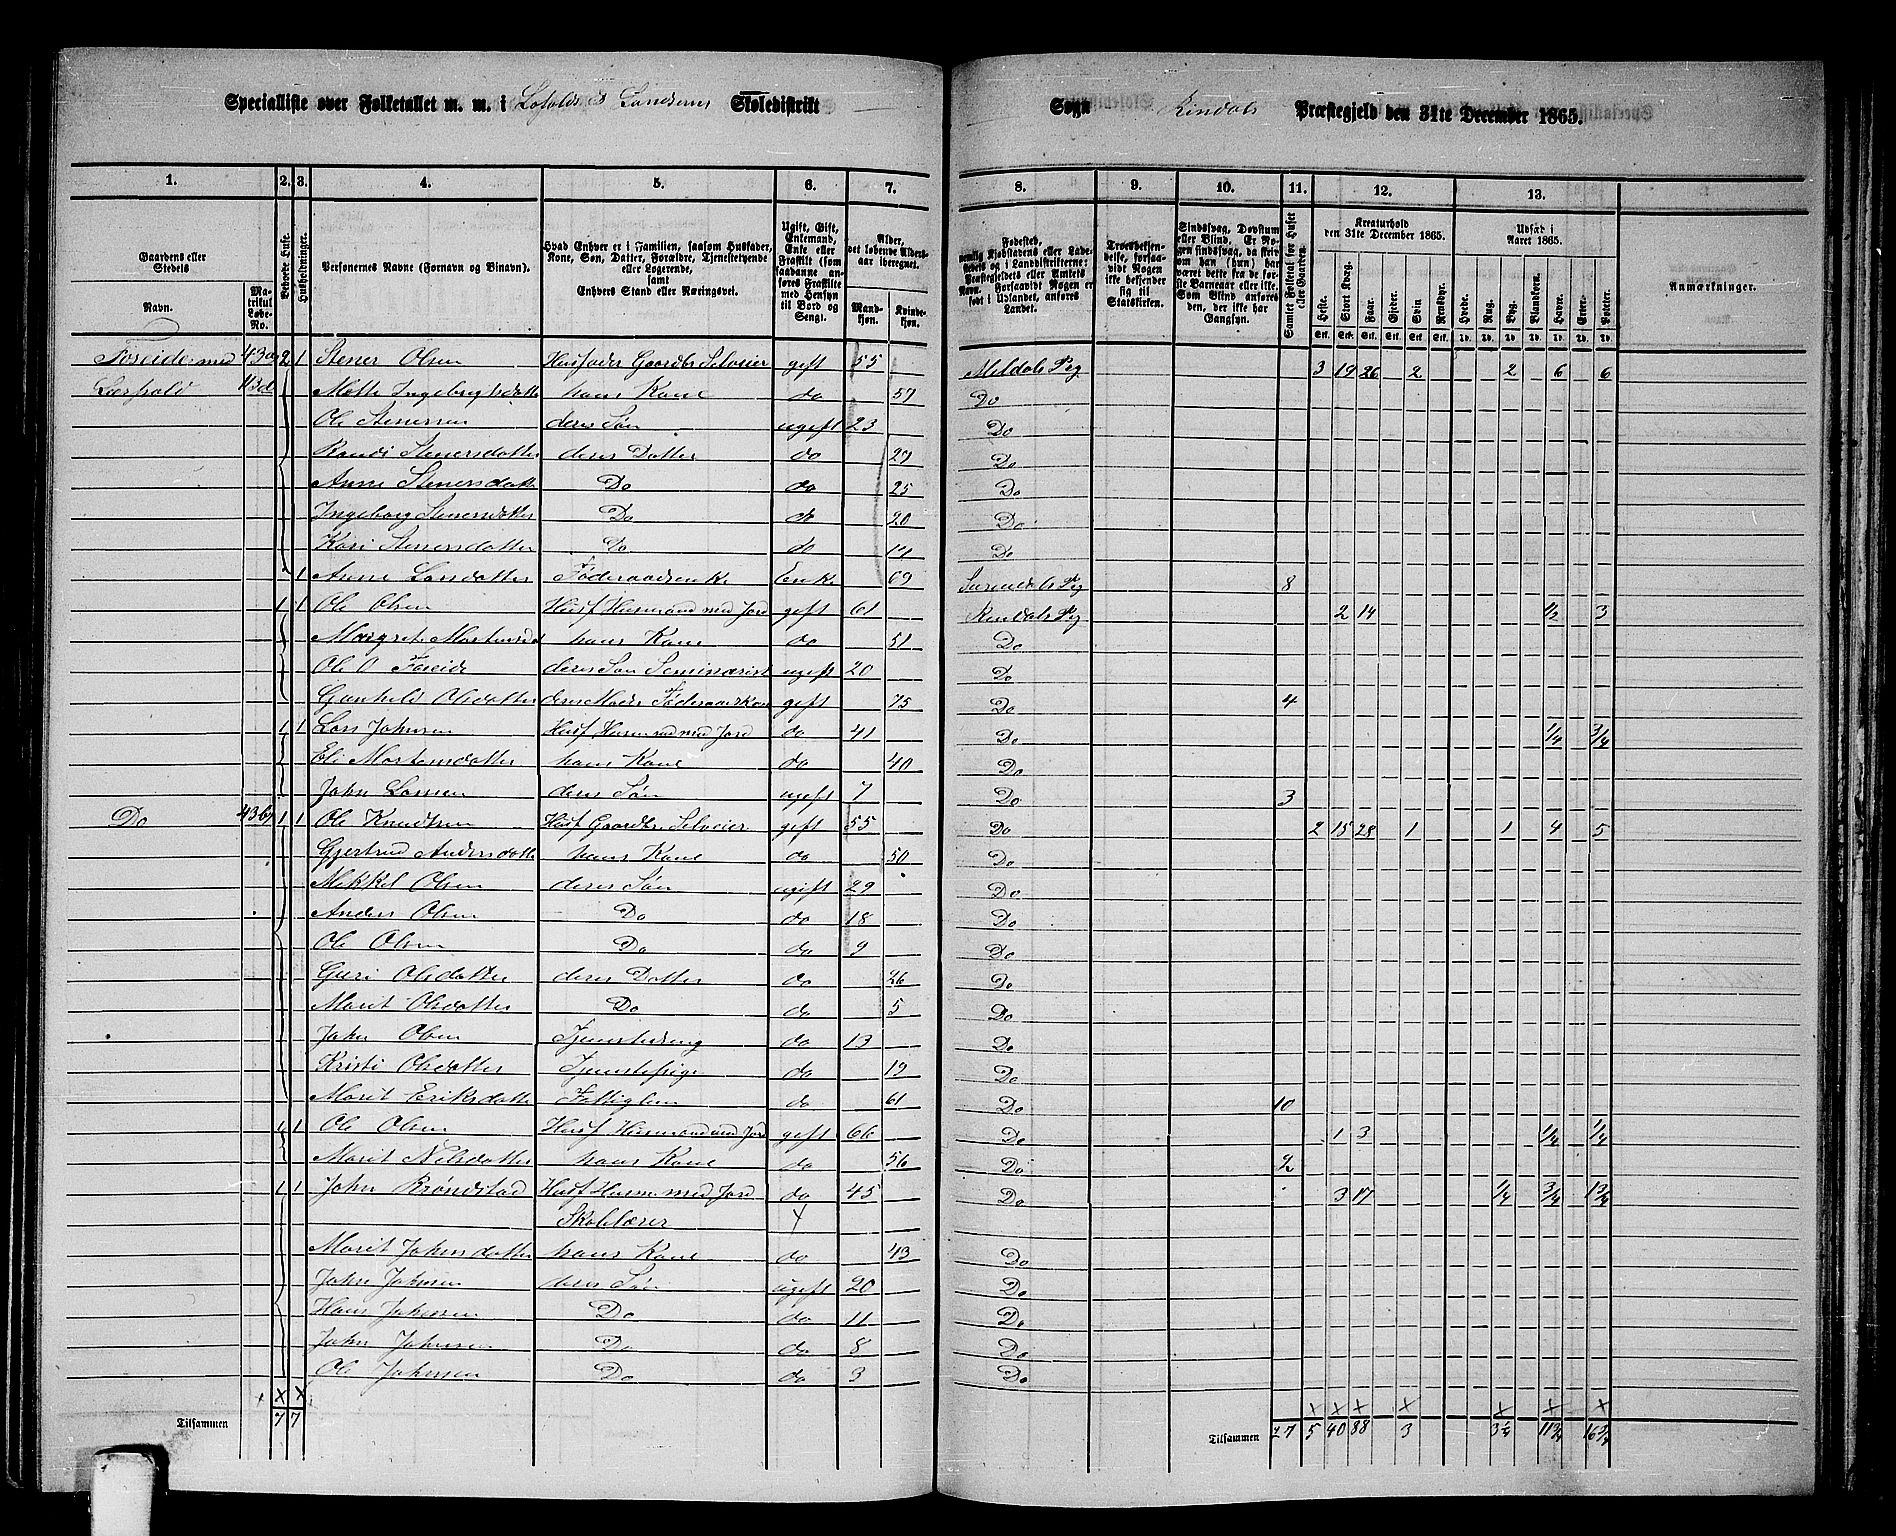 Specialliste over Folketallet m. m. i Skoledistrikt Sogn Rindals Præstegjeld den 31te December 1865.
1. 2. 3. 4. 5. 6. 7. 8. 9. 10. 11. 12. 13.
Gaardens eller Stedets Navn. Matrikul Løbe-No.
Beboede Huse.
Husholdninger.
Personernes Navne (Fornavn og Binavn).
Hvad Enhver er i Familien, saasom Husfader, Kone, Søn, Datter, Forældre, Tjenestetyende eller Logerende, samt Enhvers Stand eller Næringsvei.
Ugift, Gift, Enkemand, Enke eller Fraskilt
Alder, det løbende Aldersaar iberegnet. Mandkjøn. Kvindekjøn.
Fødested,
Samlet Folketal for Huset eller Gaarden.
Kreaturhold den 31te December 1865. Heste. Stort Kvæg. Faar. Gjeder. Svin Rensdyr.
Udsæd i Aaret 1865. Hvede. Rug. Byg. Blandkorn. Havre. Erter. Poteter.
Anmærkninger.
Foseide med 43a 2 1 Stener Olsen Husfader Gaardbr Selveier gift 55 Meldals Pg 3 19 26 2 2 6 6
43d hans Kone do Do
Ole Stenersen deres Søn ugift 23 Do
Randi Stenersdatter deres Datter do 29 Do
Anne Stenersdatter Do do 25 Do
Ingeborg Stenersdatter Do do 20 Do
Kari Stenersdatter Do do Do
1 Anne Larsdatter Føderaadsenke Enke 69 Surendals Pg 8
1 1 Ole Olsen Husf Husmand med Jord gift 61 Rindals Pg 2 14 1/2 3
hans Kone do 51 Do
Ole O Foseide deres Søn Seminarist ugift 20 Do
Gunhild Olsdatter deres Moder gift 75 Do 4
1 1 Lars Johnsen Husf Husmand med Jord do 41 Do 1/4 3/4
Eli Mortensdatter hans Kone do 40 Do
John Larsen deres Søn ugift 7 Do 3
Do 43b 1 1 Ole Knudsen Husf Gaardbr Selveier gift 55 Do 2 15 28 1 1 4 5
Gjertrud Andersdatter hans Kone do 50 Do
Mikkel Olsen deres Søn ugift 29 Do
Anders Olsen Do do 18 Do
Ole Olsen Do do 9 Do
Guri Olsdatter deres Datter do 26 Do
Marit Olsdatter Do do 5 Do
John Olsen Tjenestedreng do 13 Do
Kristi Olsdatter Tjenestepige do 19 Do
Marit Eriksdatter Fattiglem do 61 Do 10
1 1 Ole Olsen Husf Husmand med Jord gift 66 Do 1 3 1/4 1/4
Marit Nilsdatter hans Kone do 56 Do 2
1 1 John Brøndstad Husf Husm med Jord do 45 Do 3 17 1/4 3/4 1 3/4
Skolelærer
Marit Johnsdatter hans Kone do 43 Do
John Johnsen deres Søn ugift 20 Do
Hans Johnsen Do do 11 Do
John Johnsen Do do 8 Do
Ole Johnsen Do do 3 Do
Tilsammen 7 7 Tilsammen 27 5 40 88 3